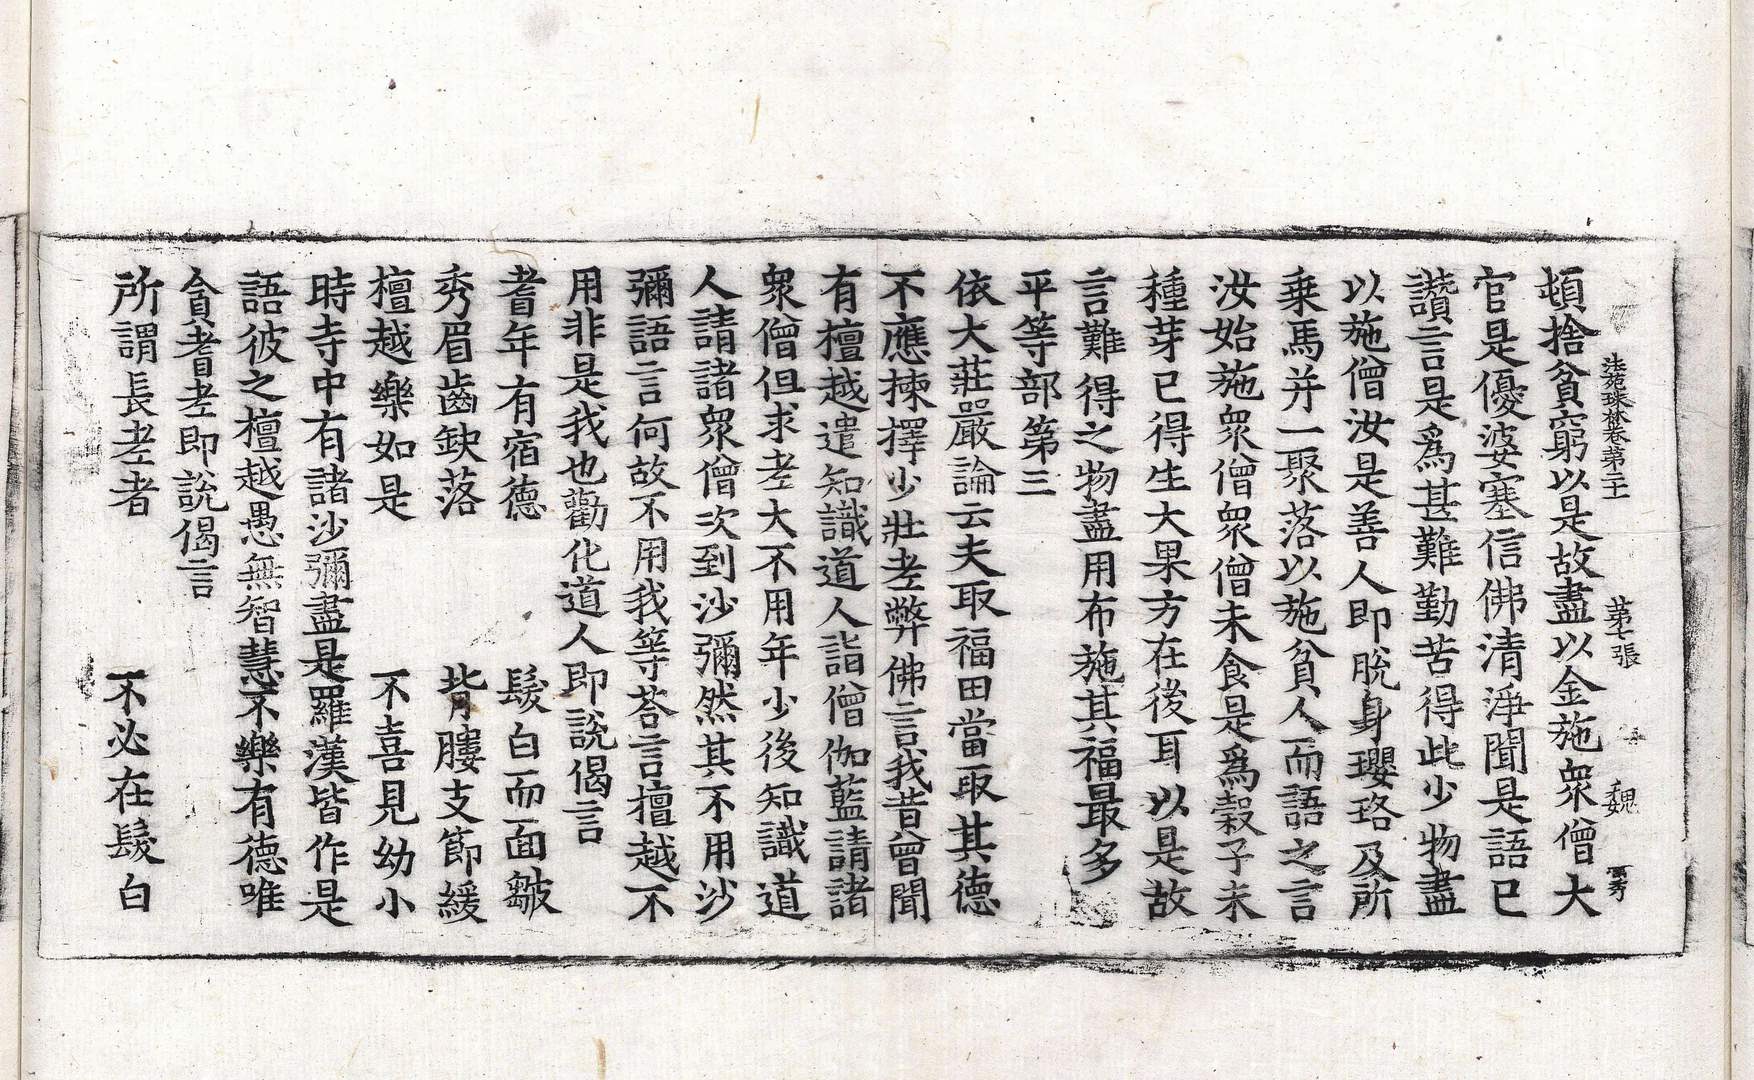 法苑珠林卷第二十一 第七張 魏 秀
頓捨貧窮以是故盡以金施衆僧大
官是優婆塞信佛清淨聞是語已
讚言是爲甚難勤苦得此少物盡
以施僧汝是善人即脫身瓔珞及所
乘馬并一聚落以施貧人而語之言
汝始施衆僧衆僧未食是爲穀子未
種芽已得生大果方在後耳以是故
言難得之物盡用布施其福最多
平等部第三
依大莊嚴論云夫取福田當取其德
不應揀擇少壯老弊佛言我昔曾聞
有檀越遣知識道人詣僧伽藍請諸
衆僧但求老大不用年少後知識道
人請諸衆僧次到沙彌然其不用沙
彌語言何故不用我等荅言檀越不
用非是我也勸化道人即說偈言
耆年有宿德 髮白而面皺
秀眉齒缺落 背膢支節緩
檀越樂如是 不喜見幼小
時寺中有諸沙彌盡是羅漢皆作是
語彼之檀越愚無智慧不樂有德唯
貪耆老即說偈言
所謂長老者 不必在髮白